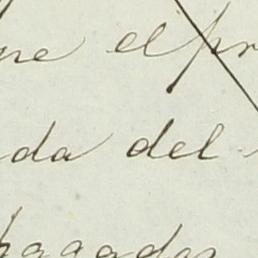 ne el pr
da del
pagados